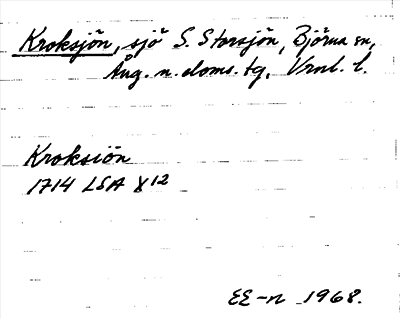 Kroksjön, sjö S. Storsjön, Björna sn,
Ång. n. doms. tg, Vrnl. l.
Kroksiön
1714 LSA X12
EE-n 1968.